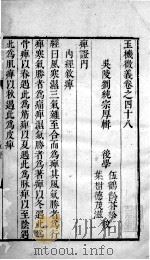 玉機微義卷之四十八
吳陵劉純宗厚輯
後學
葉樹德茂滋
痺證門
內經敘痺
經曰風寒濕三氣雜至合而為痺其風氣勝者為行
痺寒氣勝者為痛痺濕氣勝者為著痺以冬遇此為
骨痺以春遇此為筋痺以夏遇此為脉痺以至陰遇
此為肌痺以秋遇此為皮痺